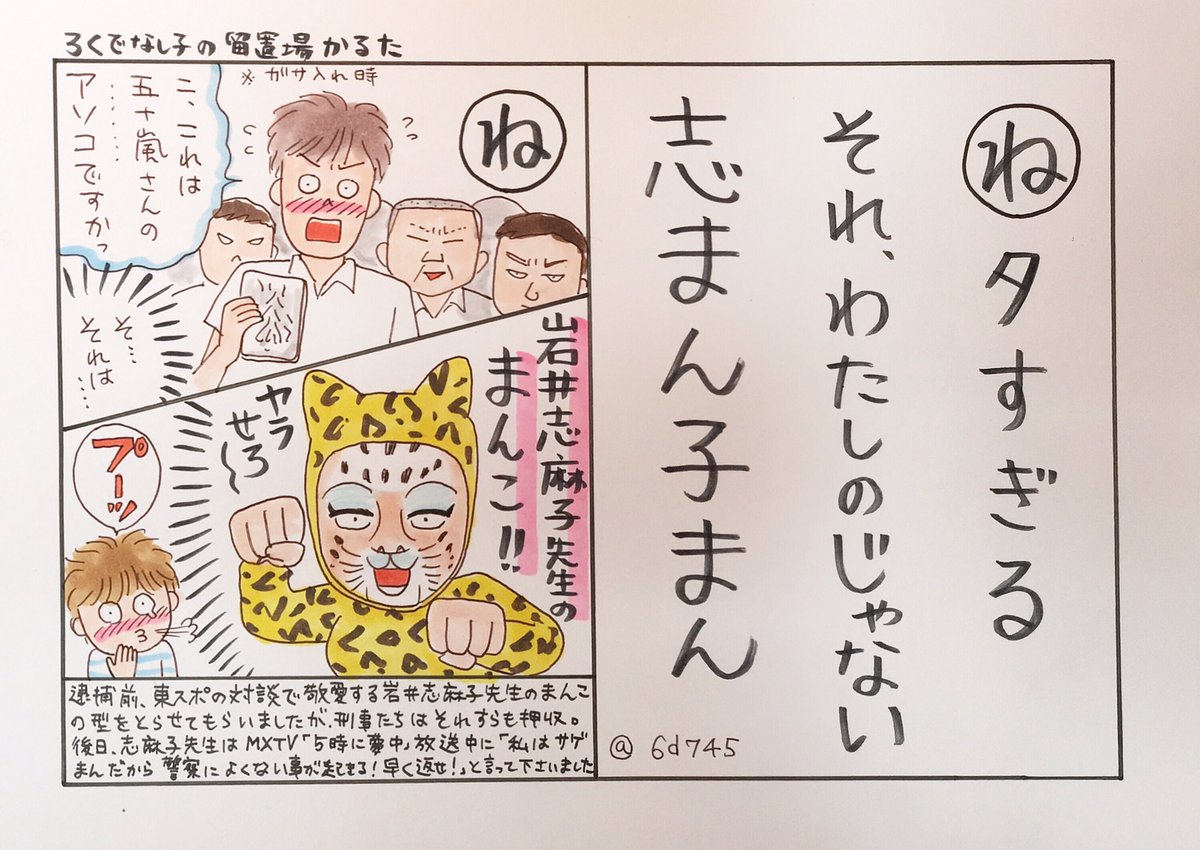 ろくでなし子の留置場かるた
※ガサ入れ時
ね
こ、これは
五十嵐さんの
………
アソコですかっ
そ…
それは…
岩井志麻子先生の
まんこ!!
ヤラ
せろ〜
プーッ
逮捕前、東スポの対談で敬愛する岩井志麻子先生のまんこ
の型をとらせてもらいましたが、刑事たちはそれすらも押収。
後日、志麻子先生はMXTV「5時に夢中」放送中に「私はサゲ
まんだから警察によくない事が起きる!早く返せ!」と言って下さいました
ね
タすぎる
それ、わたしのじゃない
志まん子まん
@6d745